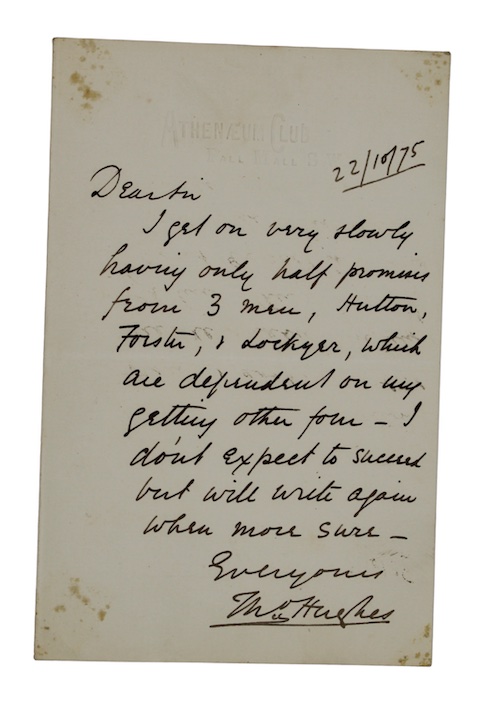 ATHENÆUM CLUB
PALL MALL S.W.
22/10/75
Dear Sir
I get on very slowly
having only half promises
from 3 men, Hutton,
Forster, & Lockyer, which
are dependent on my
getting other four – I
don't expect to succeed
but will write again
when more sure –
Ever yours
Thos Hughes